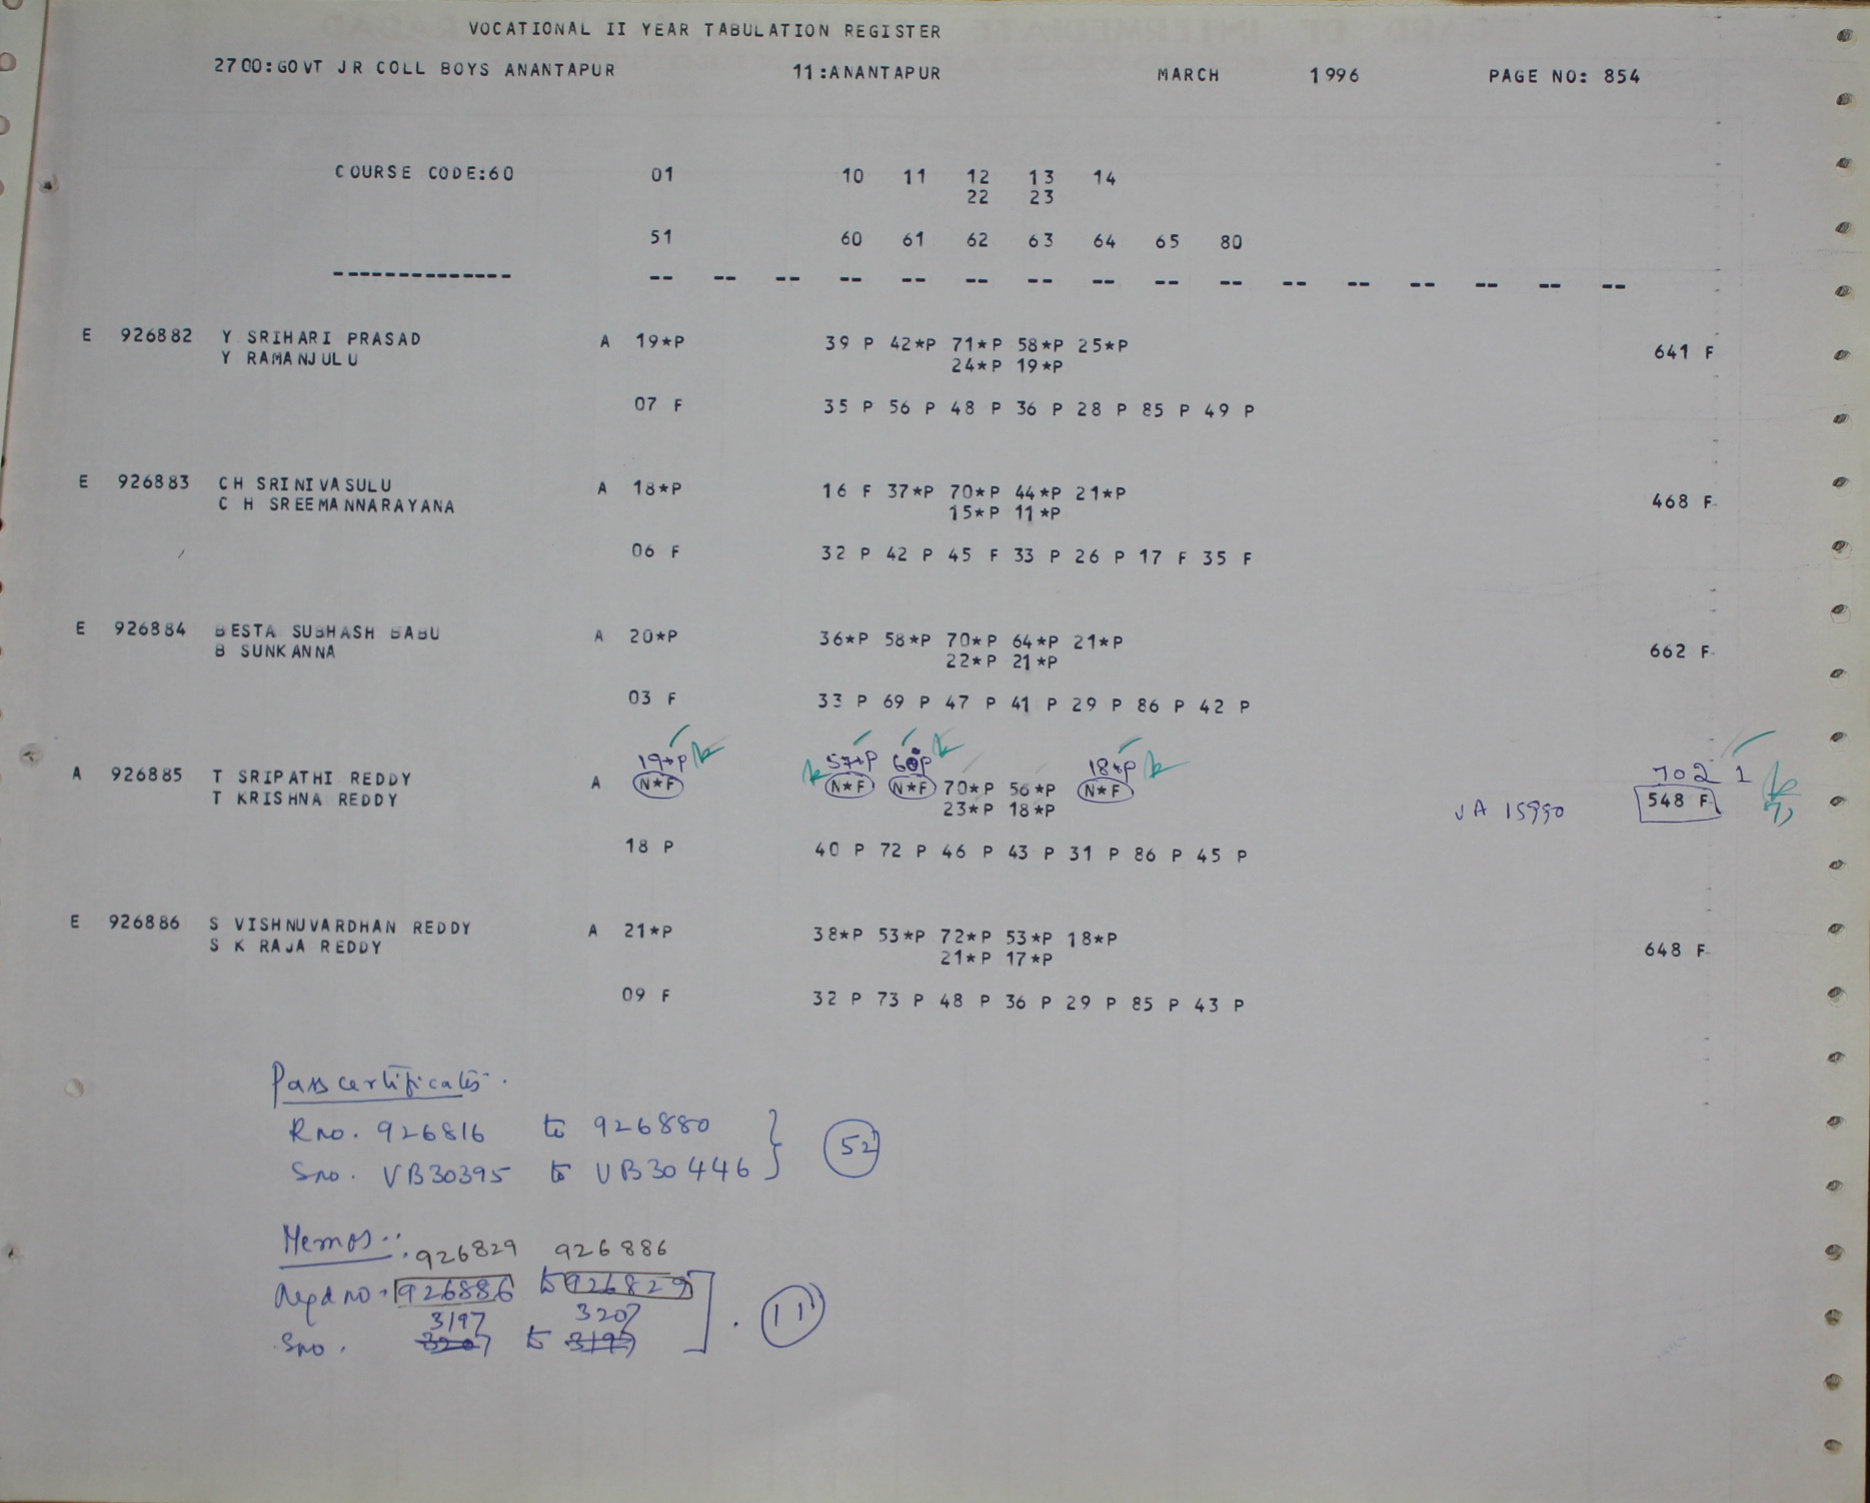 VOCATIONAL II YEAR TABULATION REGISTER
2700:GOVT JR COLL BOYS ANANTAPUR 11:ANANTAPUR MARCH 1996 PAGE NO: 854
COURSE CODE:60 01 10 11 12 13 14
22 23
51 60 61 62 63 64 65 80
-------------- -- -- -- -- -- -- -- -- -- -- -- -- -- -- -- --
E 926882 Y SRIHARI PRASAD A 19*P 39 P 42*P 71*P 58*P 25*P 641 F
Y RAMANJULU 24*P 19*P
07 F 35 P 56 P 48 P 36 P 28 P 85 P 49 P
E 926883 CH SRINIVASULU A 18*P 16 F 37*P 70*P 44*P 21*P 468 F
C H SREEMANNARAYANA 15*P 11*P
06 F 32 P 42 P 45 F 33 P 26 P 17 F 35 F
E 926884 BESTA SUBHASH BABU A 20*P 36*P 58*P 70*P 64*P 21*P 662 F
B SUNKANNA 22*P 21*P
03 F 33 P 69 P 47 P 41 P 29 P 86 P 42 P
19*P 57*P 60P 18*P 702 1
A 926885 T SRIPATHI REDDY A N*F N*F N*F 70*P 56*P N*F 548 F
T KRISHNA REDDY 23*P 18*P VA 15990
18 P 40 P 72 P 46 P 43 P 31 P 86 P 45 P
E 926886 S VISHNUVARDHAN REDDY A 21*P 38*P 53*P 72*P 53*P 18*P 648 F
S K RAJA REDDY 21*P 17*P
09 F 32 P 73 P 48 P 36 P 29 P 85 P 43 P
Pass certificates.
Rno. 926816 to 926880 } 52
Sno. VB30395 to VB30446
Memos:
926829 926886
Regd no. 926886 to 926829 ] . 11
3197 3207
Sno. 3207 to 3197